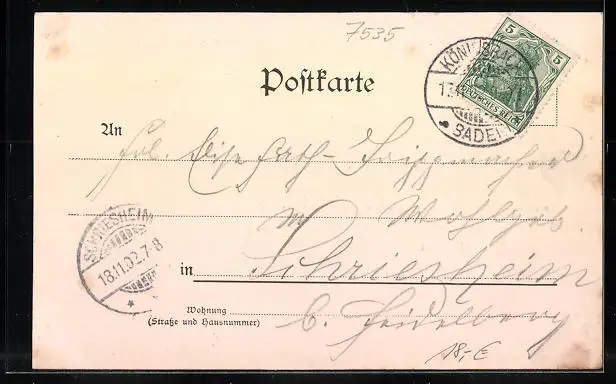 7535
5
KÖNIGSBACH
DEUTSCHES REICH
BADEN
Postkarte
An
Frl.
Wohlgeb.
SCHRIESHEIM
18.11.02.7-8
in Schriesheim
Wohnung
(Straße und Hausnummer)
b. Heidelberg
18,-€